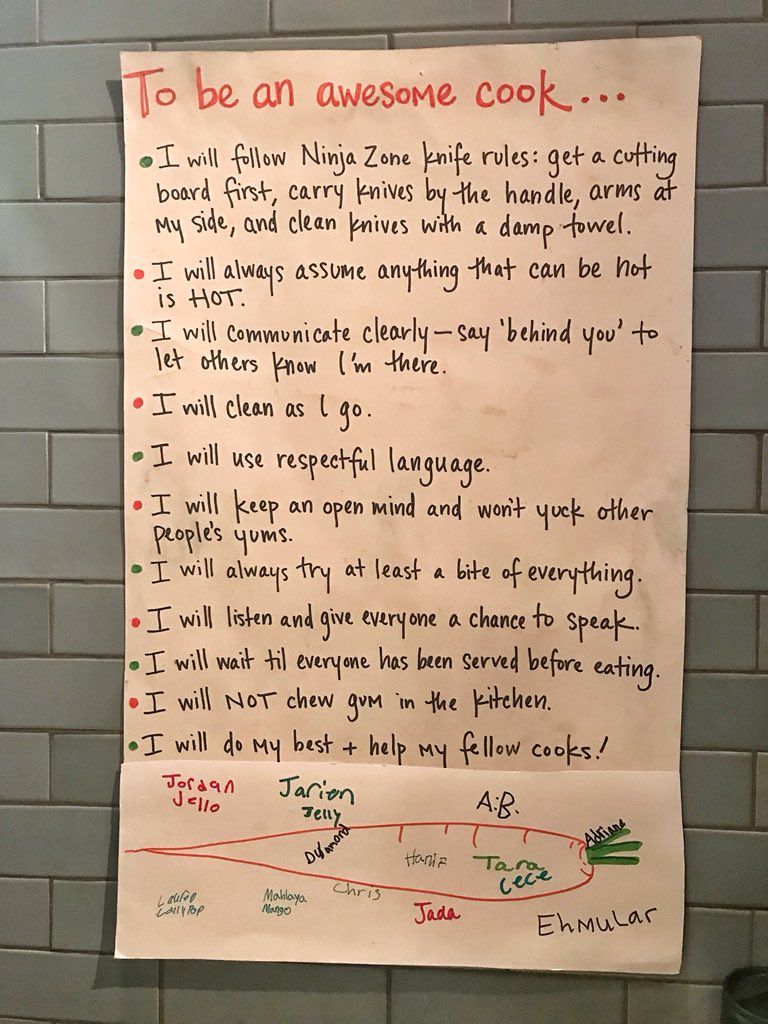 To be an awesome cook...
• I will follow Ninja Zone knife rules: get a cutting
board first, carry knives by the handle, arms at
my side, and clean knives with a damp towel.
• I will always assume anything that can be hot
is HOT.
• I will communicate clearly—say 'behind you' to
let others know I'm there.
• I will clean as I go.
• I will use respectful language.
• I will keep an open mind and won't yuck other
people's yums.
• I will always try at least a bite of everything.
• I will listen and give everyone a chance to speak.
• I will wait til everyone has been served before eating.
• I will NOT chew gum in the kitchen.
• I will do my best + help my fellow cooks!
Jordan
Jello
Jarien
Jelly
A.B.
Adriana
Hanif
Tara
CeCe
Chris
Lauren
LollyPop
Mahlaya
Mango
Jada
Ehmular